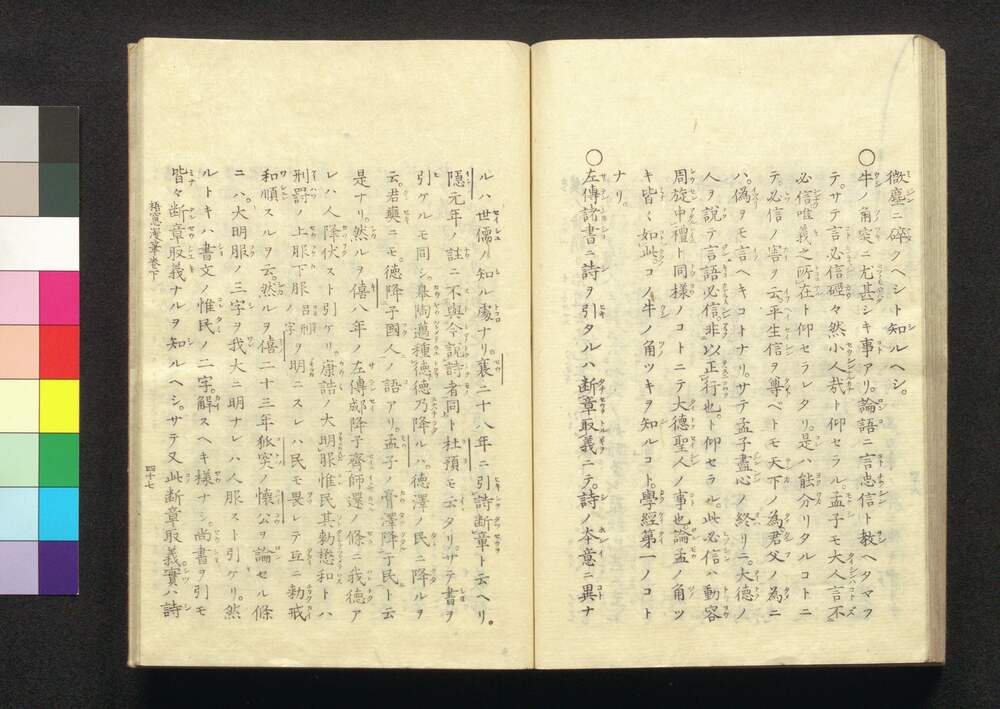 微塵ニ碎クヘシト知ルヘシ。
〇牛ノ角突ニ尤甚シキ事アリ。論語ニ言忠信ト敎ヘタマフ
テ。サテ言必信。硜々然小人哉ト仰セラル。孟子モ大人言不
必信唯義之所在ト仰セラレタリ。是ハ能分リタルコトニ
テ。必信ノ害ヲ云。平生信ヲ尊ベトモ天下ノ為君父ノ為ニ
ハ。偽ヲモ言ヘキコトナリ。サテ孟子盡心ノ終リニ。大德ノ
人ヲ說テ言語必信。非以正行也。ト仰セラル。此必信ハ動容
周旋中禮ト同樣ノコトニテ大德聖人ノ事也論孟ノ角ツ
キ皆〱如此コノ牛ノ角ツキヲ知ルコト。學經第一ノコト
ナリ。
〇左傳諸書ニ詩ヲ引タルハ断章取義ニテ。詩ノ本意ニ異ナ
ルハ世儒ノ知ル處ナリ。襄二十八年ニ引詩断章ト云ヘリ。
隱元年ノ註ニ不與今說詩者同ト杜預モ云タリ。サテ書ヲ
引ケルモ同シ。皋陶邁種德德乃降ルハ。德澤ノ民ニ降ルヲ
云。君奭ニモ。德降子國人ノ語アリ。孟子ノ膏澤降于民ト云
是ナリ。然ルヲ僖八年ノ左傳郕降于齊師還ノ條ニ我德ア
レハ人降伏スト引ケリ。康誥ノ大明服惟民其勅懋和トハ
刑罰ノ上服下服呂刑ノ字ヲ明ニスレハ民モ畏レテ互ニ勅戒
和順スルヲ云。然ルヲ僖二十三年狐突ノ懐公ヲ論セル條
ニハ。大明服ノ三字ヲ我大ニ明ナレハ人服スト引ケリ。然
ルトキハ書文ノ惟民ノ二字。解スヘキ樣ナシ。尚書ヲ引モ
皆々断章取義ナルヲ知ルヘシ。サテ又此断章取義實ハ詩
梧窓漫筆巻下
四十七